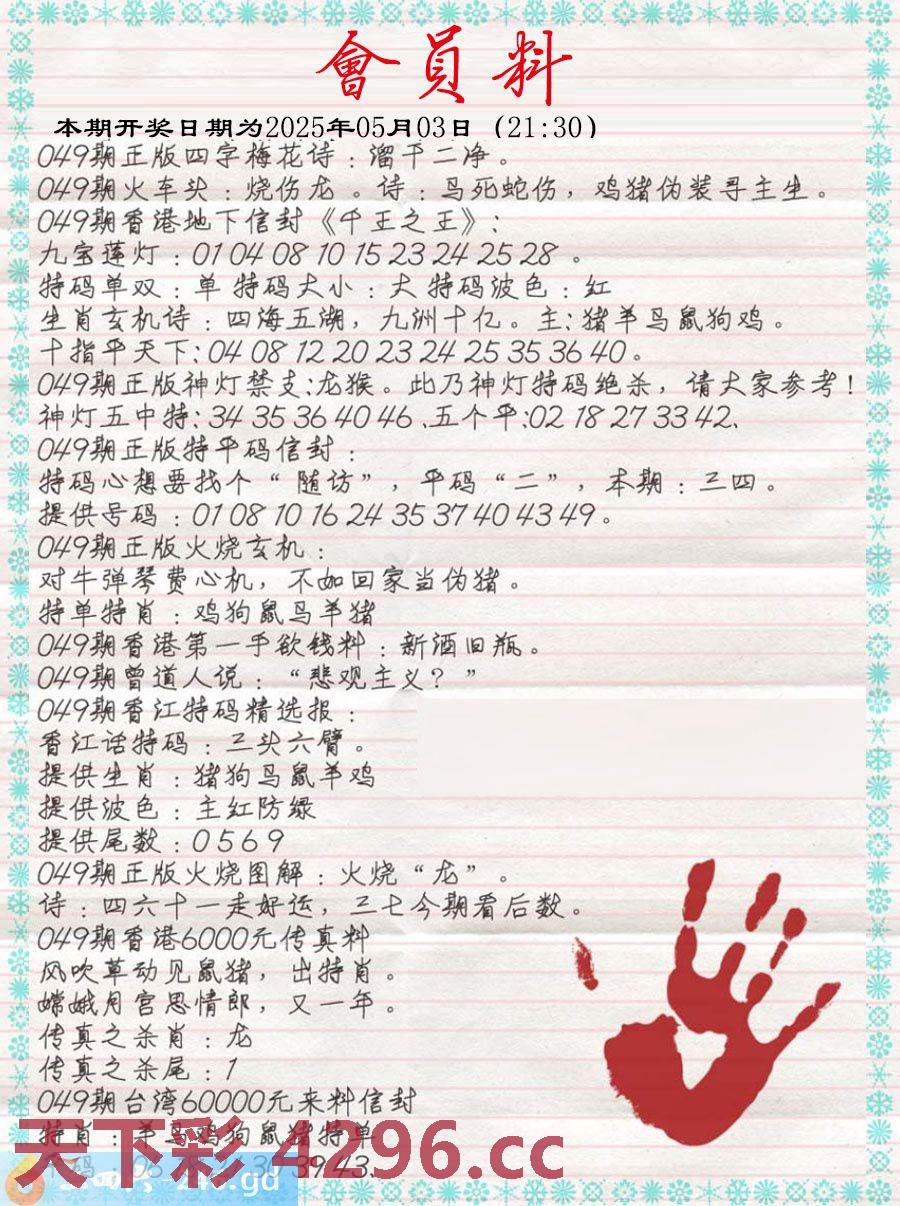 會員料
本期开奖日期为2025年05月03日（21:30）
049期正版四字梅花诗：溜干二净。
049期火车头：烧伤龙。诗：鸟死蛇伤，鸡猪伪装寻主生。
049期香港地下信封《千王之王》：
九宝莲灯：01 04 08 10 15 23 24 25 28 。
特码单双：单 特码大小：大 特码波色：红
生肖玄机诗：四海五湖，九洲十亿。主：猪羊鸟鼠狗鸡。
十指平天下：04 08 12 20 23 24 25 35 36 40。
049期正版神灯禁支:龙猴。此乃神灯特码绝杀，请大家参考！
神灯五中特：34 35 36 40 46 、五个平：02 18 27 33 42、
049期正版特平码信封：
特码心想要找个“随访”，平码“二”，本期：三四。
提供号码：01 08 10 16 24 35 37 40 43 49。
049期正版火烧玄机：
对牛弹琴费心机，不如回家当伪猪。
特单特肖：鸡狗鼠鸟羊猪
049期香港第一手欲钱料：新酒旧瓶。
049期曾道人说：“悲观主义？”
049期香江特码精选报：
香江话特码：三头六臂。
提供生肖：猪狗鸟鼠羊鸡
提供波色：主红防绿
提供尾数：0 5 6 9
049期正版火烧图解：火烧“龙”。
诗：四六十一走好运，三七今期看后数。
049期香港6000元传真料
风吹草动见鼠猪，出特肖。
嫦娥月宫思情郎，又一年。
传真之杀肖：龙
传真之杀尾：1
049期台湾60000元来料信封
特肖：羊鸟鸡狗鼠猪特单
39 43、
天下彩 4296.cc